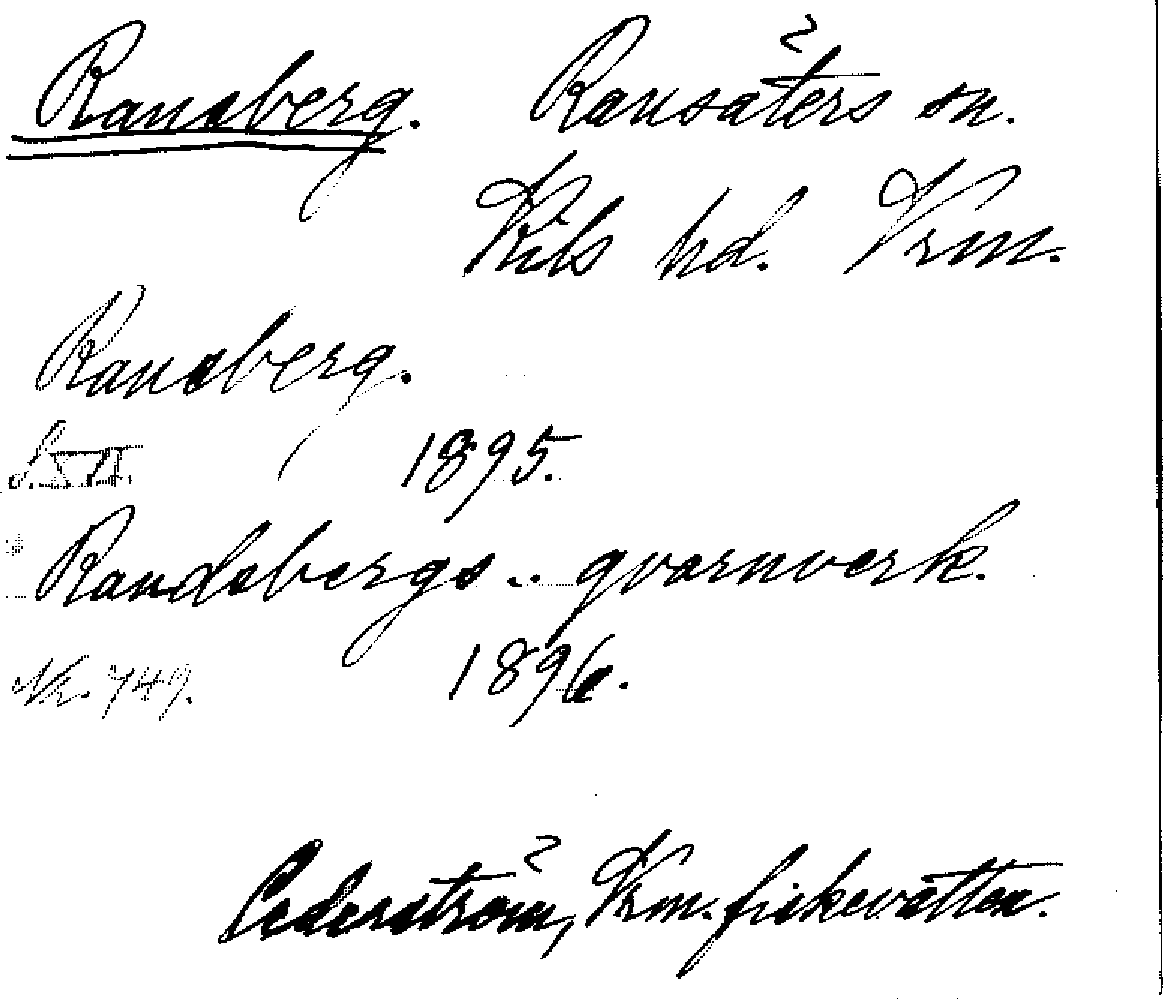 Ransberg. Ransäters sn.
Kils hd. Vrm.
Ransberg.
S. VI. 1895.
Randsbergs .. qvarnverk.
Nr. 749. 1896.
Cederström, Vrm. fiskevatten.